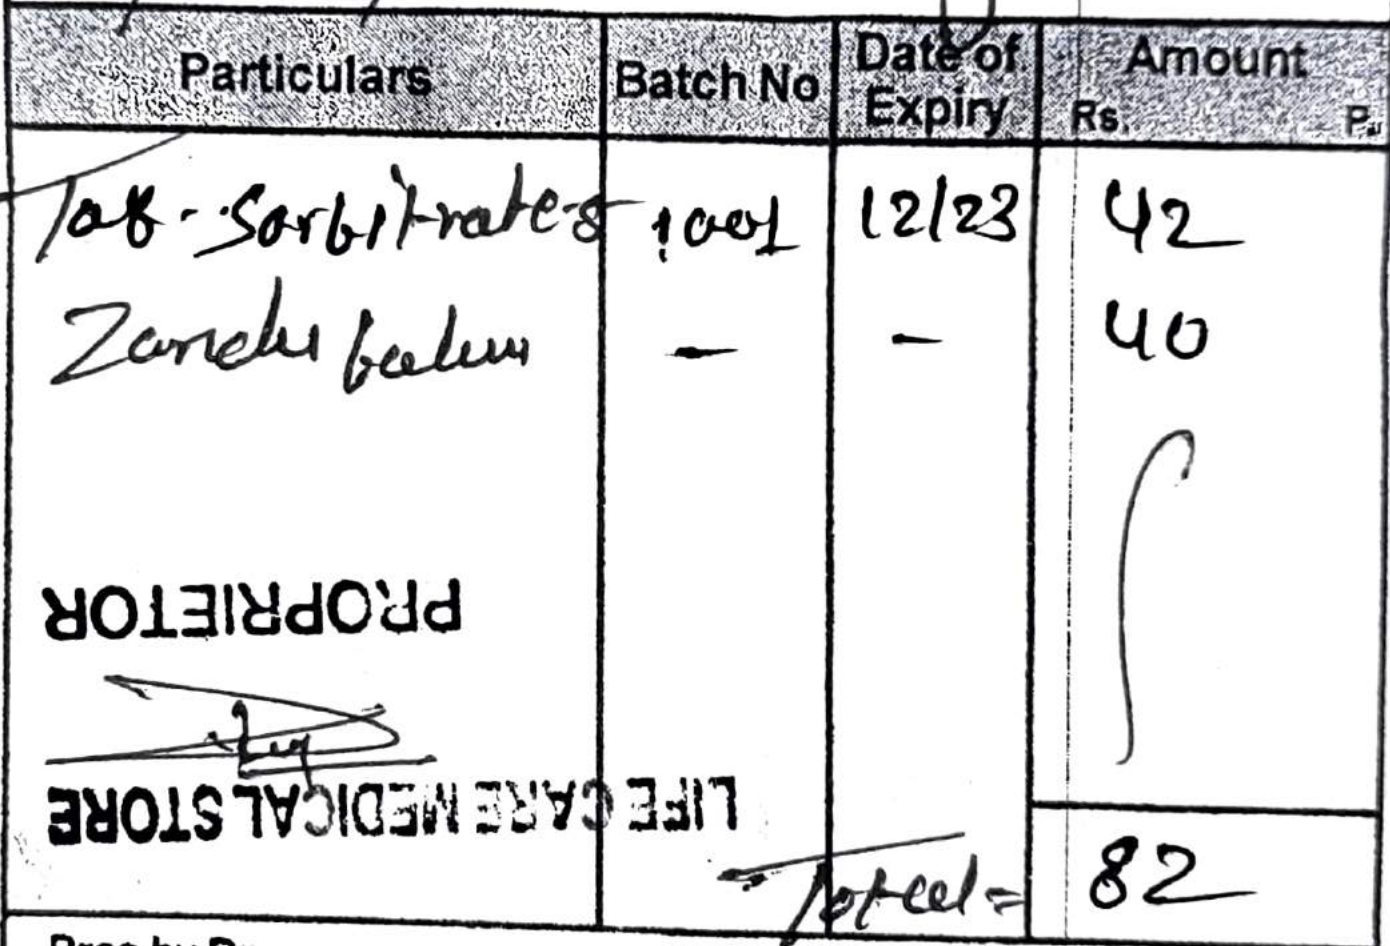 Particulars Batch No Date of Expiry Amount
Rs. P.
Tab - Sorbitrate-5 1001 12/23 42
Zandu balm - - 40
PROPRIETOR
LIFE CARE MEDICAL STORE
Total = 82